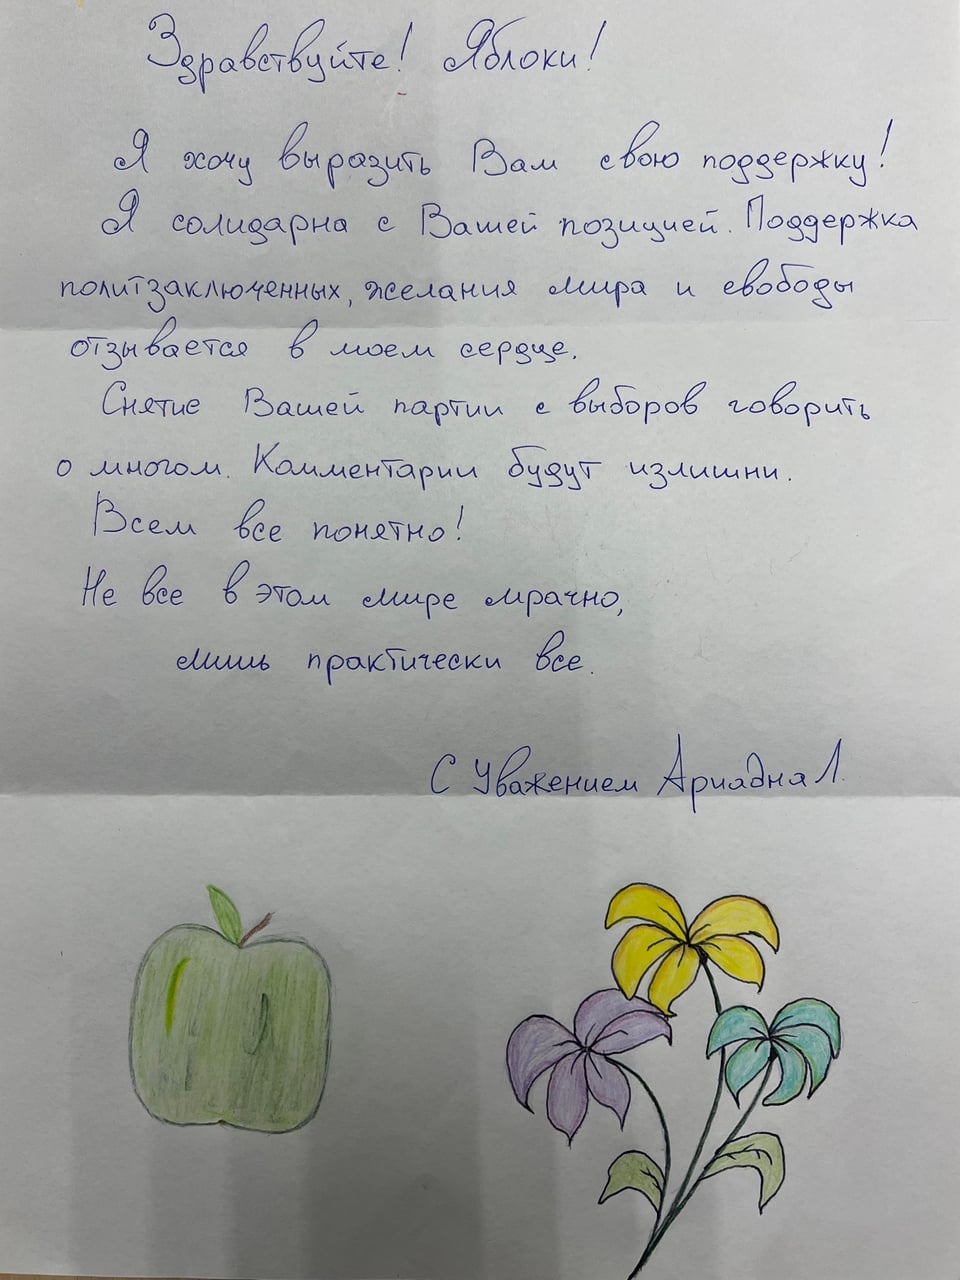 Здравствуйте! Яблоки!
Я хочу выразить Вам свою поддержку!
Я солидарна с Вашей позицией. Поддержка
политзаключенных, желания мира и свободы
отзывается в моем сердце.
Снятие Вашей партии с выборов говорить
о многом. Комментарии будут излишни.
Всем все понятно!
Не все в этом мире мрачно,
лишь практически все.
С Уважением Ариадна Л.